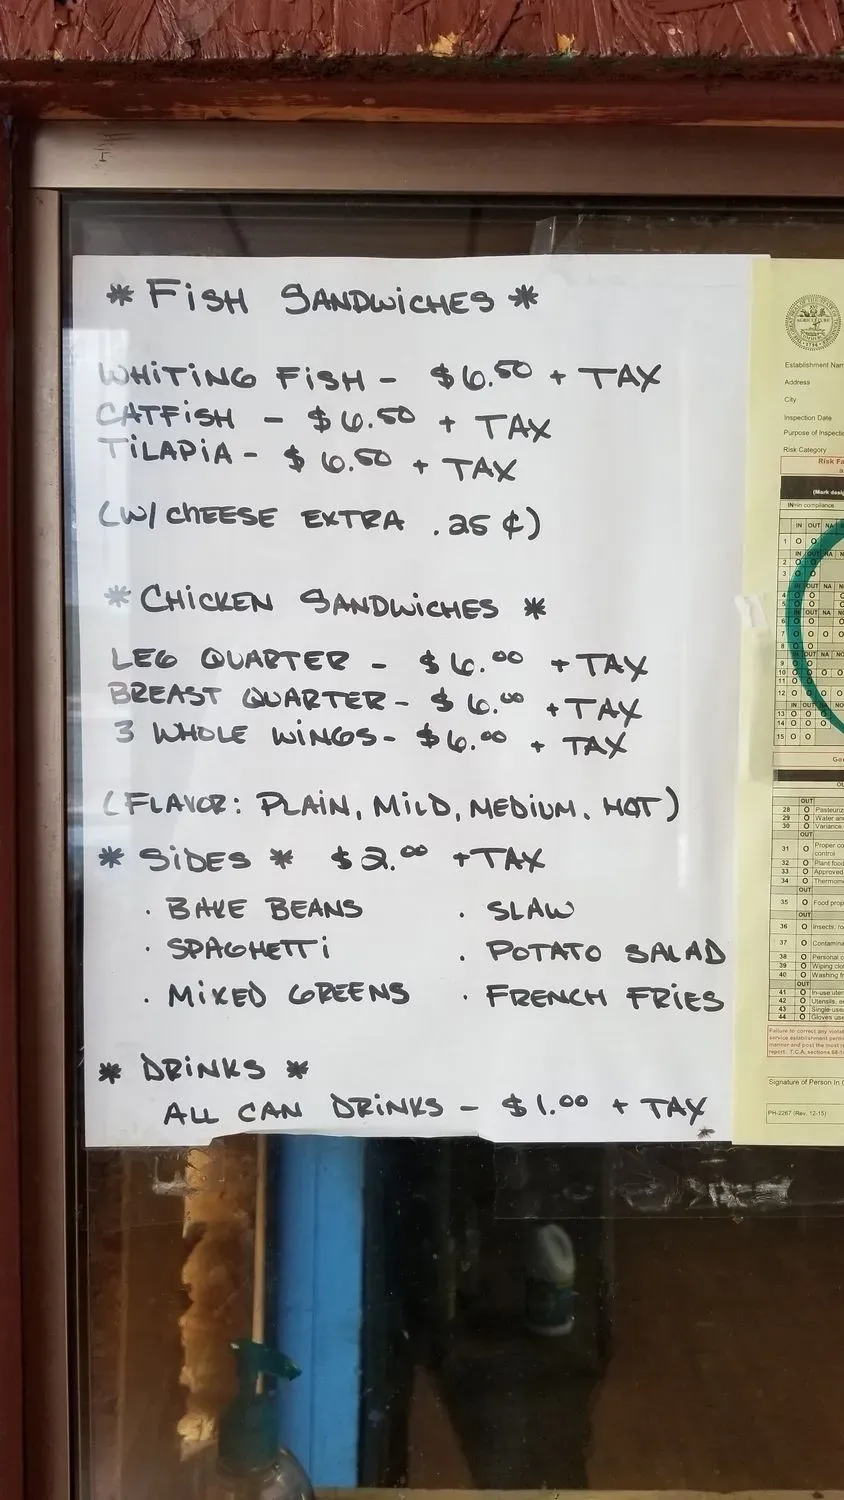 * FISH SANDWICHES *
WHITING FISH - $6.50 + TAX
CATFISH - $6.50 + TAX
TILAPIA - $6.50 + TAX
(W/ CHEESE EXTRA .25¢)
* CHICKEN SANDWICHES *
LEG QUARTER - $6.00 + TAX
BREAST QUARTER - $6.00 + TAX
3 WHOLE WINGS - $6.00 + TAX
(FLAVOR: PLAIN, MILD, MEDIUM, HOT)
* SIDES * $2.00 + TAX
· BAKE BEANS · SLAW
· SPAGHETTI · POTATO SALAD
· MIXED GREENS · FRENCH FRIES
* DRINKS *
ALL CAN DRINKS - $1.00 + TAX
AGRICULTURE
Establishment Nam
Address
City
Inspection Date
Purpose of Inspecti
Risk Category
Risk Fa
(Mark desig
IN=in compliance
IN OUT NA
OUT
28 O Pasteuriz
29 O Water an
30 O Variance
OUT
31 O Proper co
control
32 O Plant food
33 O Approved
34 O Thermome
OUT
35 O Food prop
OUT
36 O Insects, ro
37 O Contamina
38 O Personal c
39 O Wiping clo
40 O Washing fr
OUT
41 O In-use uten
42 O Utensils, e
43 O Single use
44 O Gloves use
Failure to correct any violati
service establishment perm
manner and post the most r
report. T.C.A. sections 68-14
Signature of Person In C
PH-2267 (Rev. 12-15)